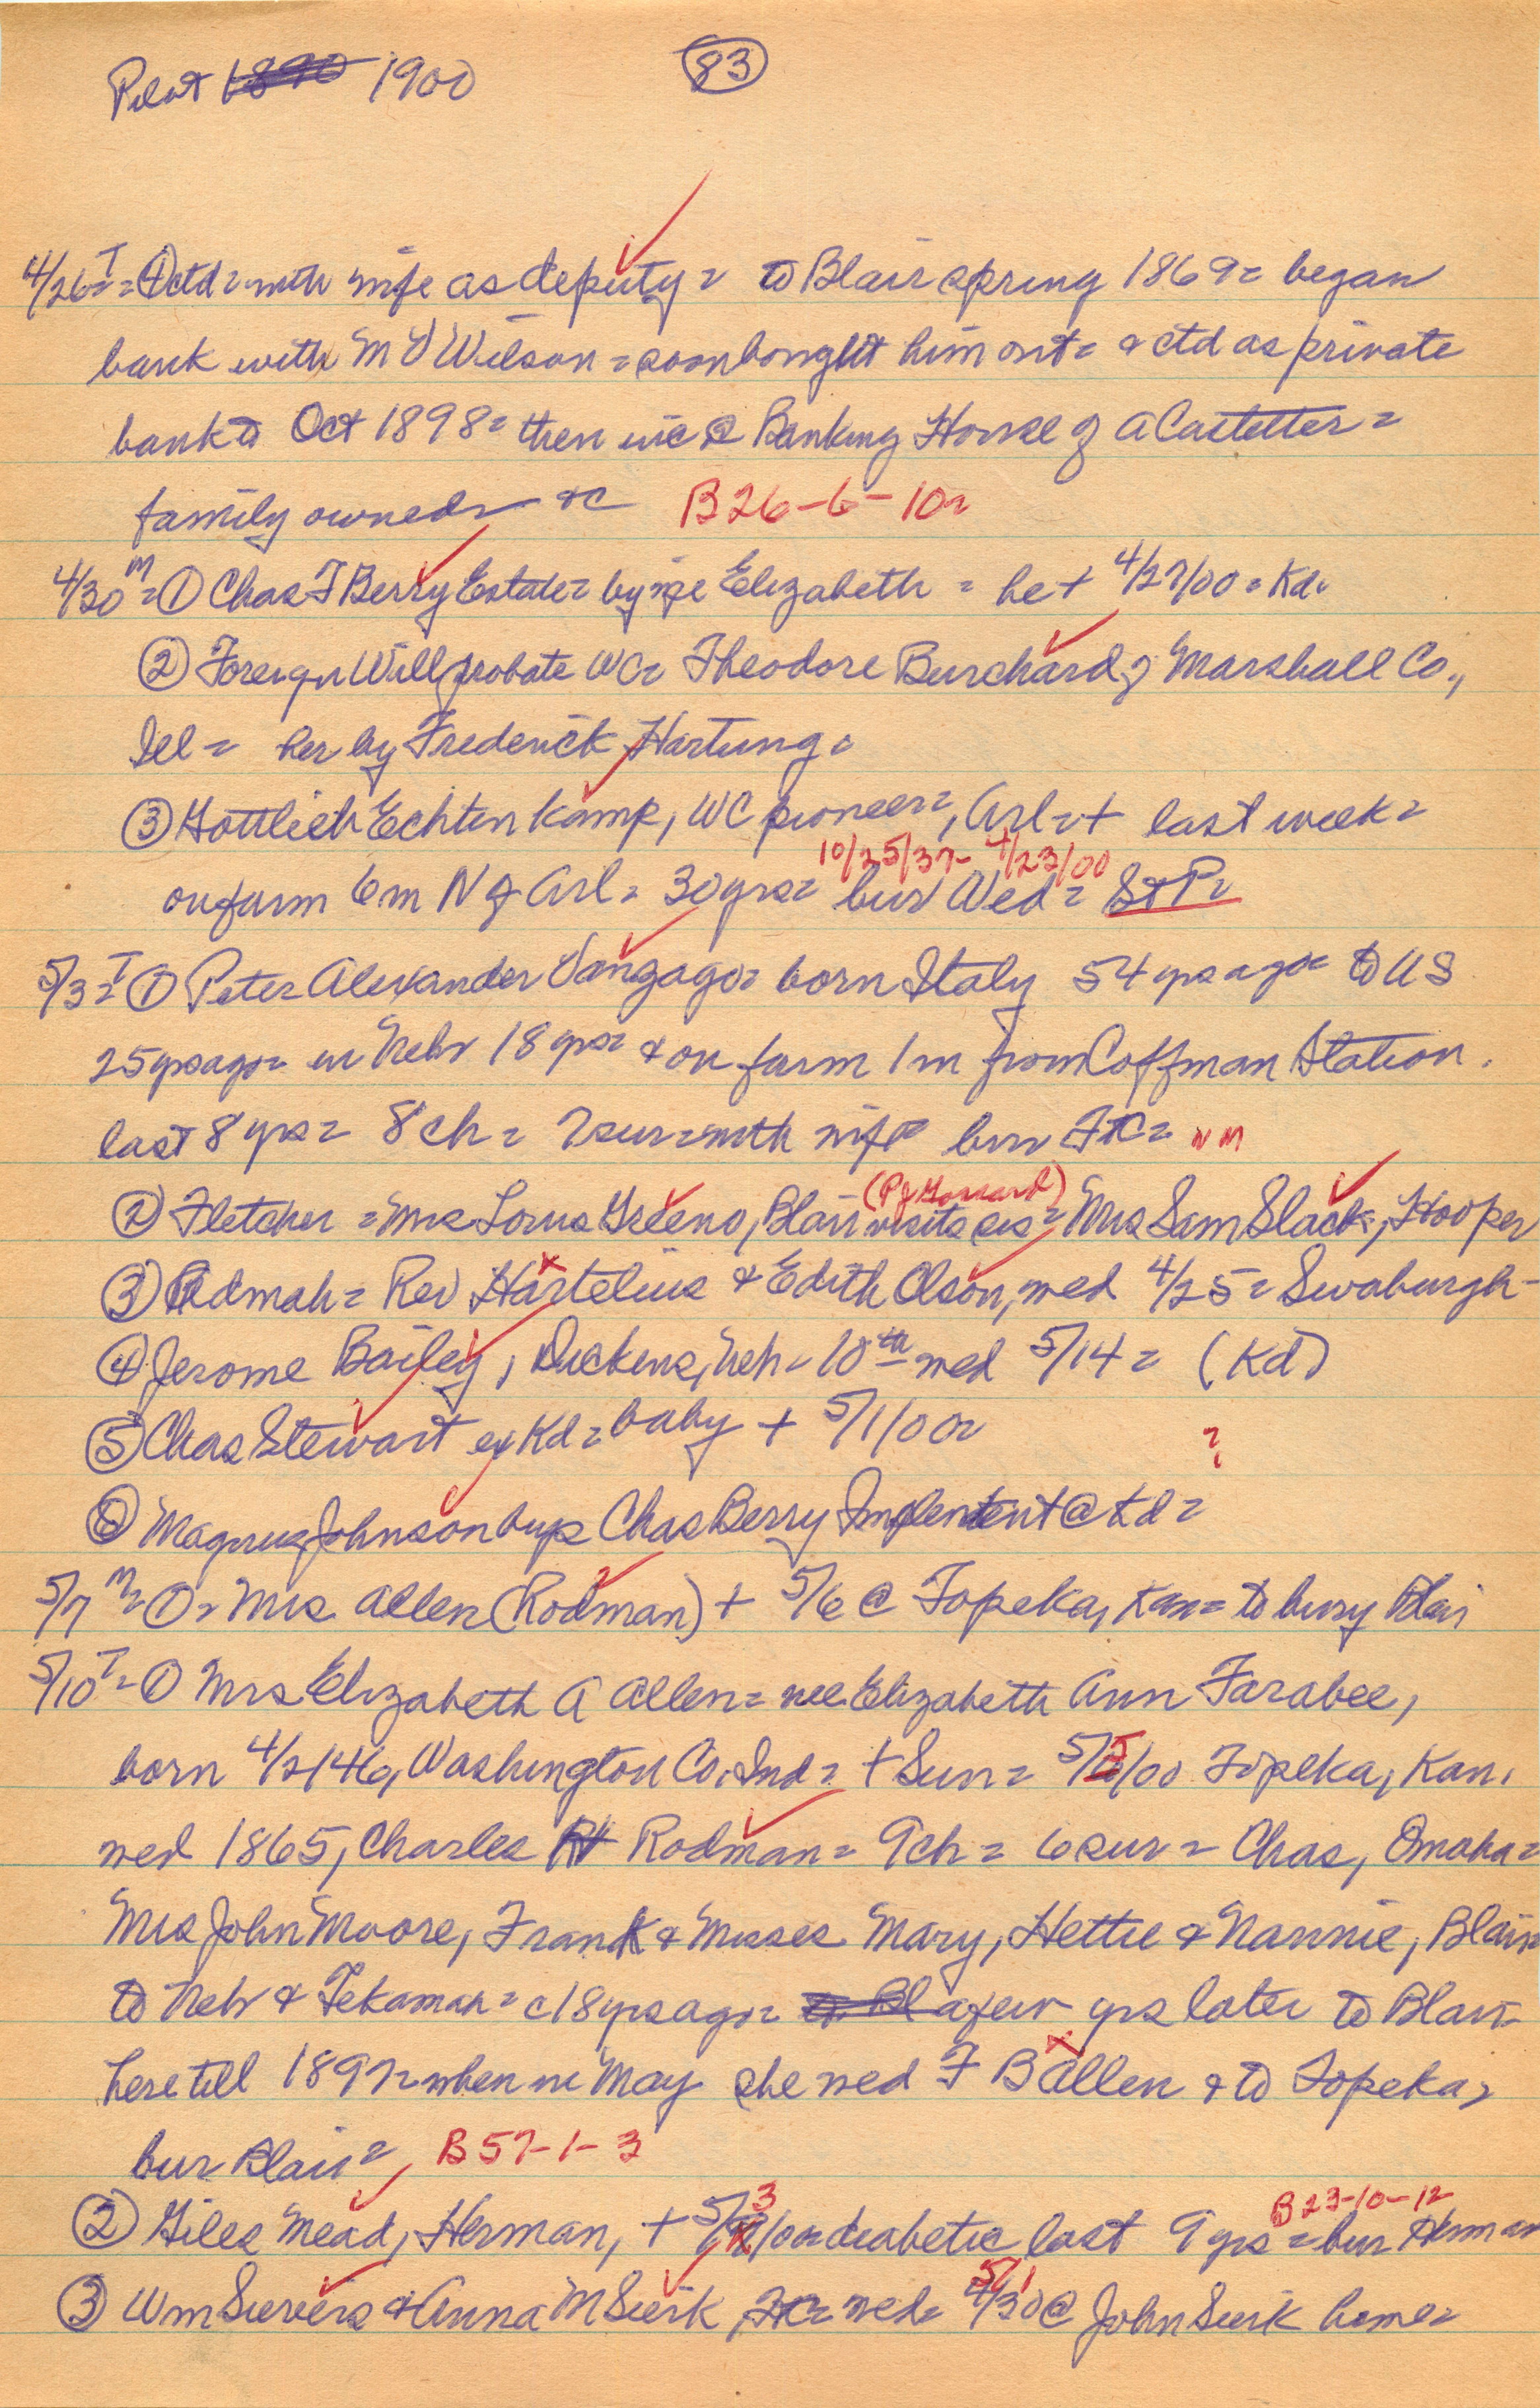 Pilot 1890 1900
83
4/26 T = ① ctd = with wife as deputy = to Blair spring 1869 = began
bank with M V Wilson = soon bought him out = & ctd as private
bank to Oct 1898 = then inc @ Banking House of A Castetter =
family owned = &c B26-6-10=
4/30 M = ① Chas F Berry Estate = by wife Elizabeth = he + 4/27/00 = Kd.
② Foreign Will probate WC = Theodore Burchard of Marshall Co.,
Ill = her by Frederick Hartung =
③ Gottlieb Echtenkamp, WC pioneer =, Arl = + last week =
10/25/37 - 4/23/00
on farm 6m N of Arl = 30 yrs = bur Wed = St P =
5/3 = T ① Peter Alexander Vangago = born Italy 54 yrs ago = to US
25 yrs ago = in Nebr 18 yrs = & on farm 1 m from Coffman Station.
last 8 yrs = 8 ch = 7 sur = with wife = bur FtC = NM
(P J Gossard)
② Fletcher = Mrs Lorus Greeno, Blair visits sis = Mrs Sam Slack, Hooper
③ Admah = Rev Hartelius & Edith Olson, wed 4/25 = Swaburgh -
④ Jerome Bailey, Dickens, Neb = 10th wed 5/14 = (Kd)
⑤ Chas Stewart ex Kd = baby + 5/1/00 =
?
⑥ Magnus Johnson buys Chas Berry Implement @ Kd =
5/7 M = ① = Mrs Allen (Rodman) + 5/6 @ Topeka, Kan = to bury Blair
5/10 T = ① Mrs Elizabeth A Allen = nee Elizabeth Ann Farabee,
born 4/2/46, Washington Co. Ind = + Sun = 5/5/00 Topeka, Kan.
wed 1865, Charles H Rodman = 9 ch = 6 sur = Chas, Omaha =
Mrs John Moore, Frank & Misses Mary, Hettie & Nannie, Blair =
to Nebr & Tekamah = c 18 yrs ago = to Bl a few yrs later to Blair =
here till 1897 = when in May she wed F B Allen & to Topeka,
bur Blair = B57-1-3
② Giles Mead, Herman, + 5/3/00 = diabetic last 9 yrs = bur Herman
B23-10-12
③ Wm Sievers & Anna M Sierk, FtC = wed = 4/30 @ John Sierk home =
5/1